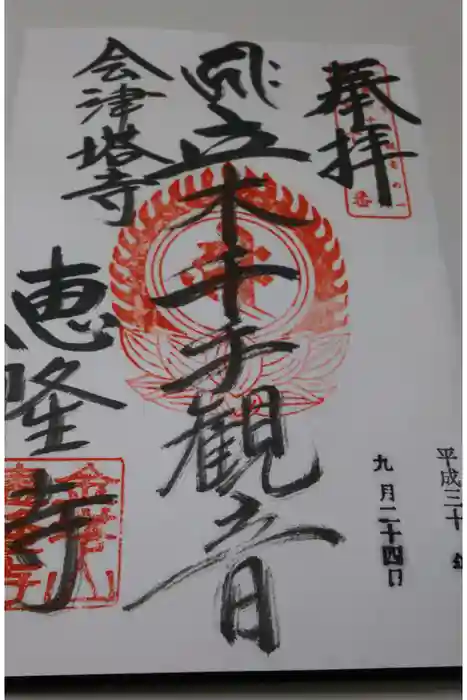 奉拝
平成三十年
九月二十四日
立木千手観音
会津塔寺
恵隆寺